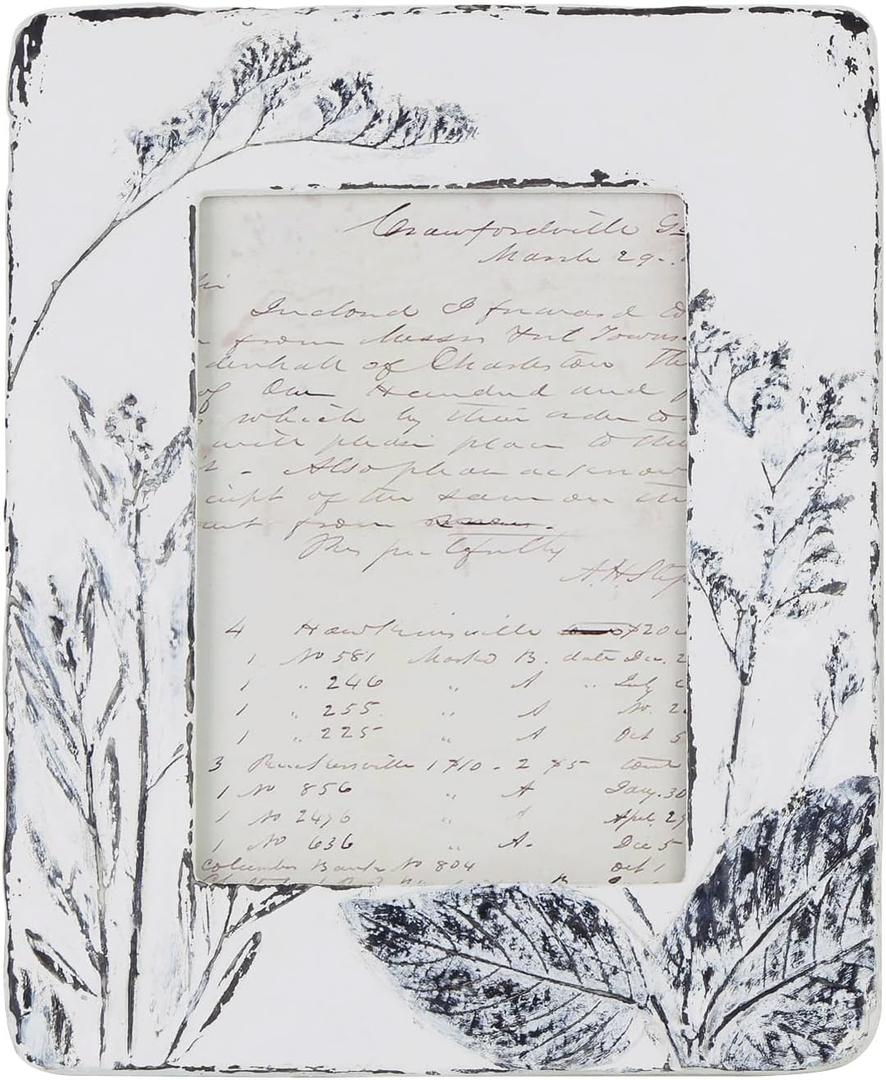 Crawfordville Ga
March 29
Inclosd I forward to
from Messrs Hul Towns
denhall of Charleston The
of One Hundred and
which by their order to
will please place to their
Also please acknow
ceipt of the same on the
from
Respectfully
A H Step
4 Hawkinsville $20
1 No 581 Marked B. date Dec. 2
1 " 246 " A " July
1 " 255 " A No. 2
1 " 225 " A Oct 5
3 1 $10 - 2 $5
1 No 856 " A Jany. 30
1 No 2476 " A Apl. 29
1 No 636 " A. Dec 5
Columbus Bank No 804 Oct 1